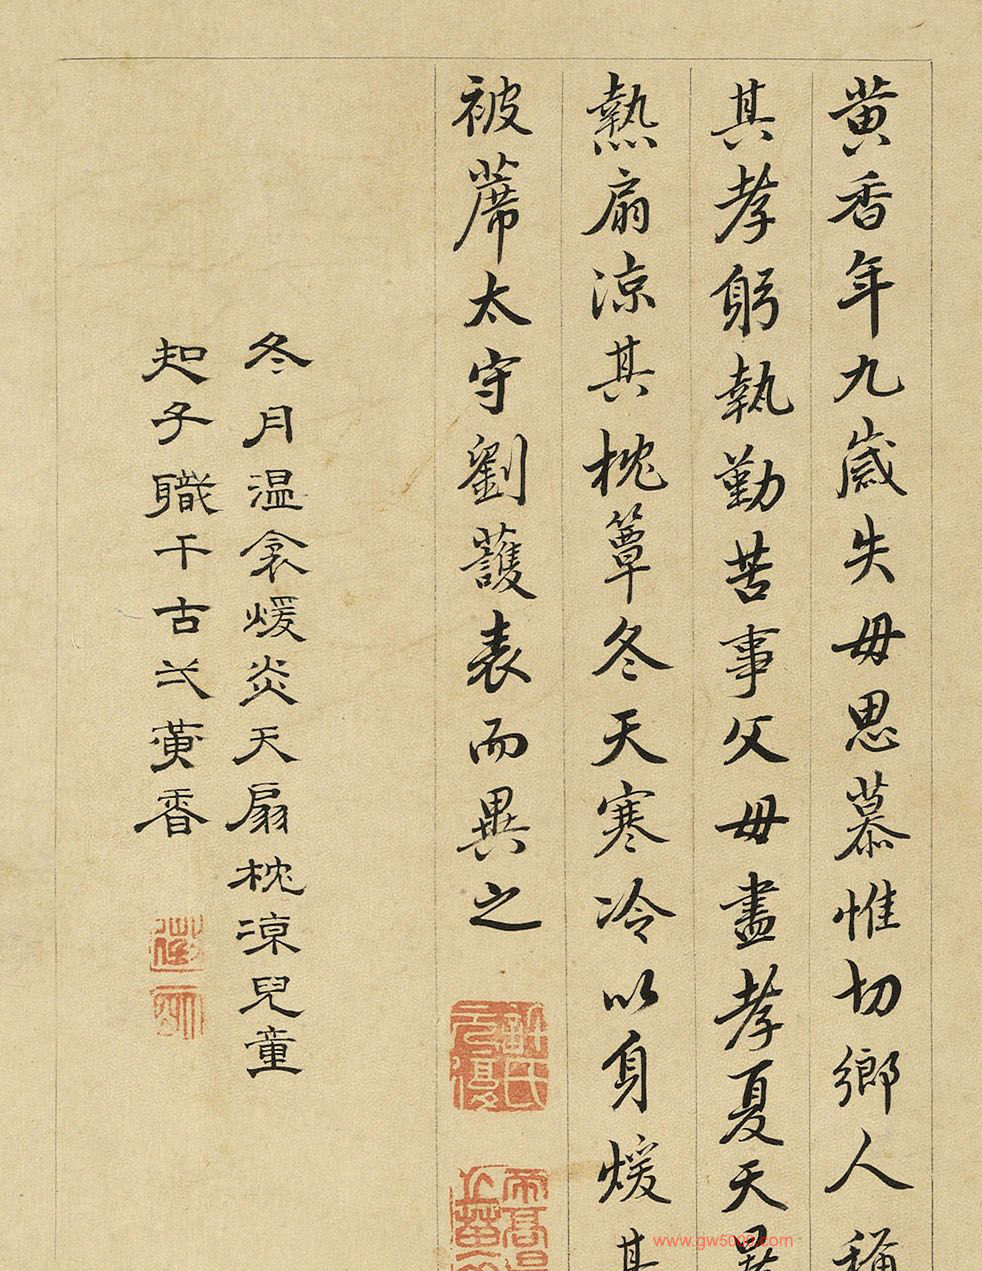 黄香年九歲失毋思慕惟切鄉人稱
其孝躬執勤苦事父毋盡孝夏天暑
熱扇涼其枕簟冬天寒冷以身煖其
被蓆太守劉護表而異之
冬月温衾煖炎天扇枕涼兒童
知子職千古弌黄香
www.gw5000.com